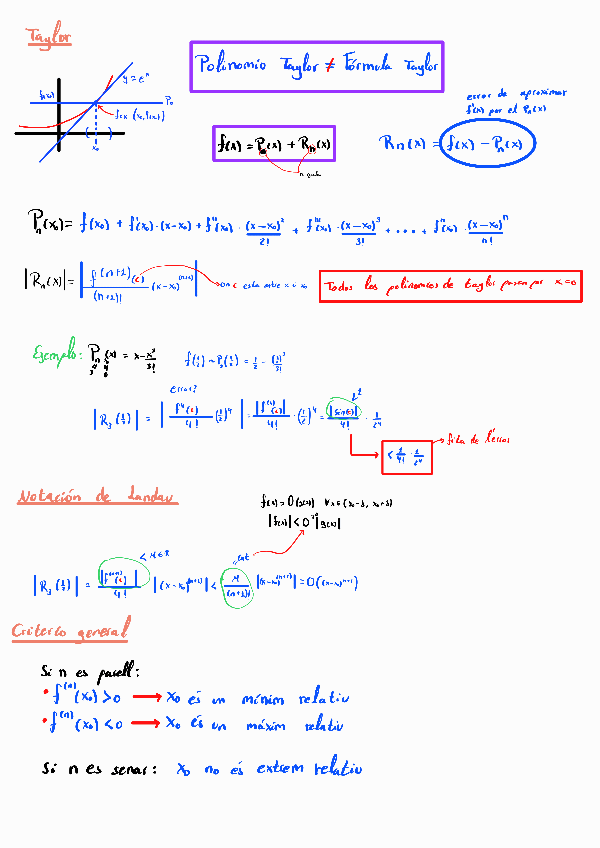 Taylor
Polinomio Taylor ≠ Fórmula Taylor
y = eˣ
f(x₀)
P₀
(x₀, f(x₀))
x₀
f(x) = Pₙ(x) + Rₙ(x)
n grado
error de aproximar
f(x) por el Pₙ(x)
Rₙ(x) = f(x) − Pₙ(x)
Pₙ(x₀) = f(x₀) + f'(x₀)·(x−x₀) + f''(x₀)·(x−x₀)²/2! + f'''(x₀)·(x−x₀)³/3! + ... + fⁿ(x₀)·(x−x₀)ⁿ/n!
|Rₙ(x)| = |f⁽ⁿ⁺¹⁾(c)/(n+1)! (x−x₀)⁽ⁿ⁺¹⁾| → on c esta entre x i x₀
Todos los polinomios de taylor pasan por x=0
Ejemplo: Pₙ(x) = x − x³/3! f(1/2) ~ P₃(1/2) = 1/2 − (1/2)³/3!
error?
|R₃(1/2)| = |f⁴(c)/4! (1/2)⁴| = |f⁽⁴⁾(c)|/4! · (1/2)⁴ = |sin(c)|/4! · 1/2⁴
< 1/4! · 1/2⁴
fita de l'error
Notación de Landau
f(x) = O(g(x)) ∀x ∈ (x₀−δ, x₀+δ)
< M ∈ R
cnt
|R₃(1/2)| = |f⁽ⁿ⁺¹⁾(c)|/4! |(x−x₀)⁽ⁿ⁺¹⁾| < M/(n+1)! |(x−x₀)⁽ⁿ⁺¹⁾| = O((x−x₀)ⁿ⁺¹)
Criterio general
Si n es parell:
• f⁽ⁿ⁾(x₀) > 0 → x₀ és un mínim relatiu
• f⁽ⁿ⁾(x₀) < 0 → x₀ és un màxim relatiu
Si n es senar: x₀ no és extrem relatiu